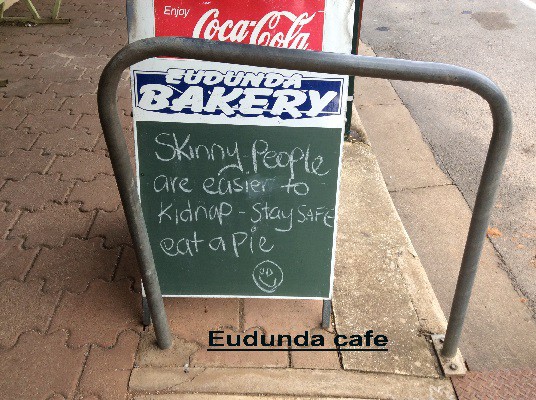 Enjoy
Coca-Cola
EUDUNDA
BAKERY
Skinny People
are easier to
Kidnap - Stay SAFE
eat a pie
Eudunda cafe